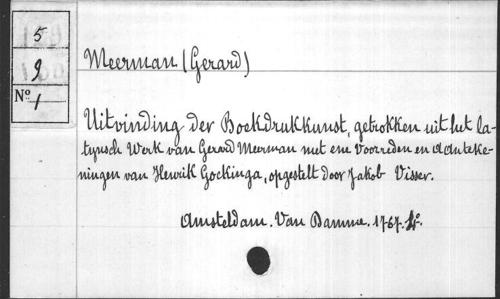 5
9
No. 1
Meerman (Gerard)
Uitvinding der Boekdrukkunst, getrokken uit het la-
tynsch Werk van Gerard Meerman met ene Voorreden en Aanteke-
ningen van Henrik Gockinga, opgestelt door Jakob Visser.
Amsteldam. Van Damme. 1767. 4o.